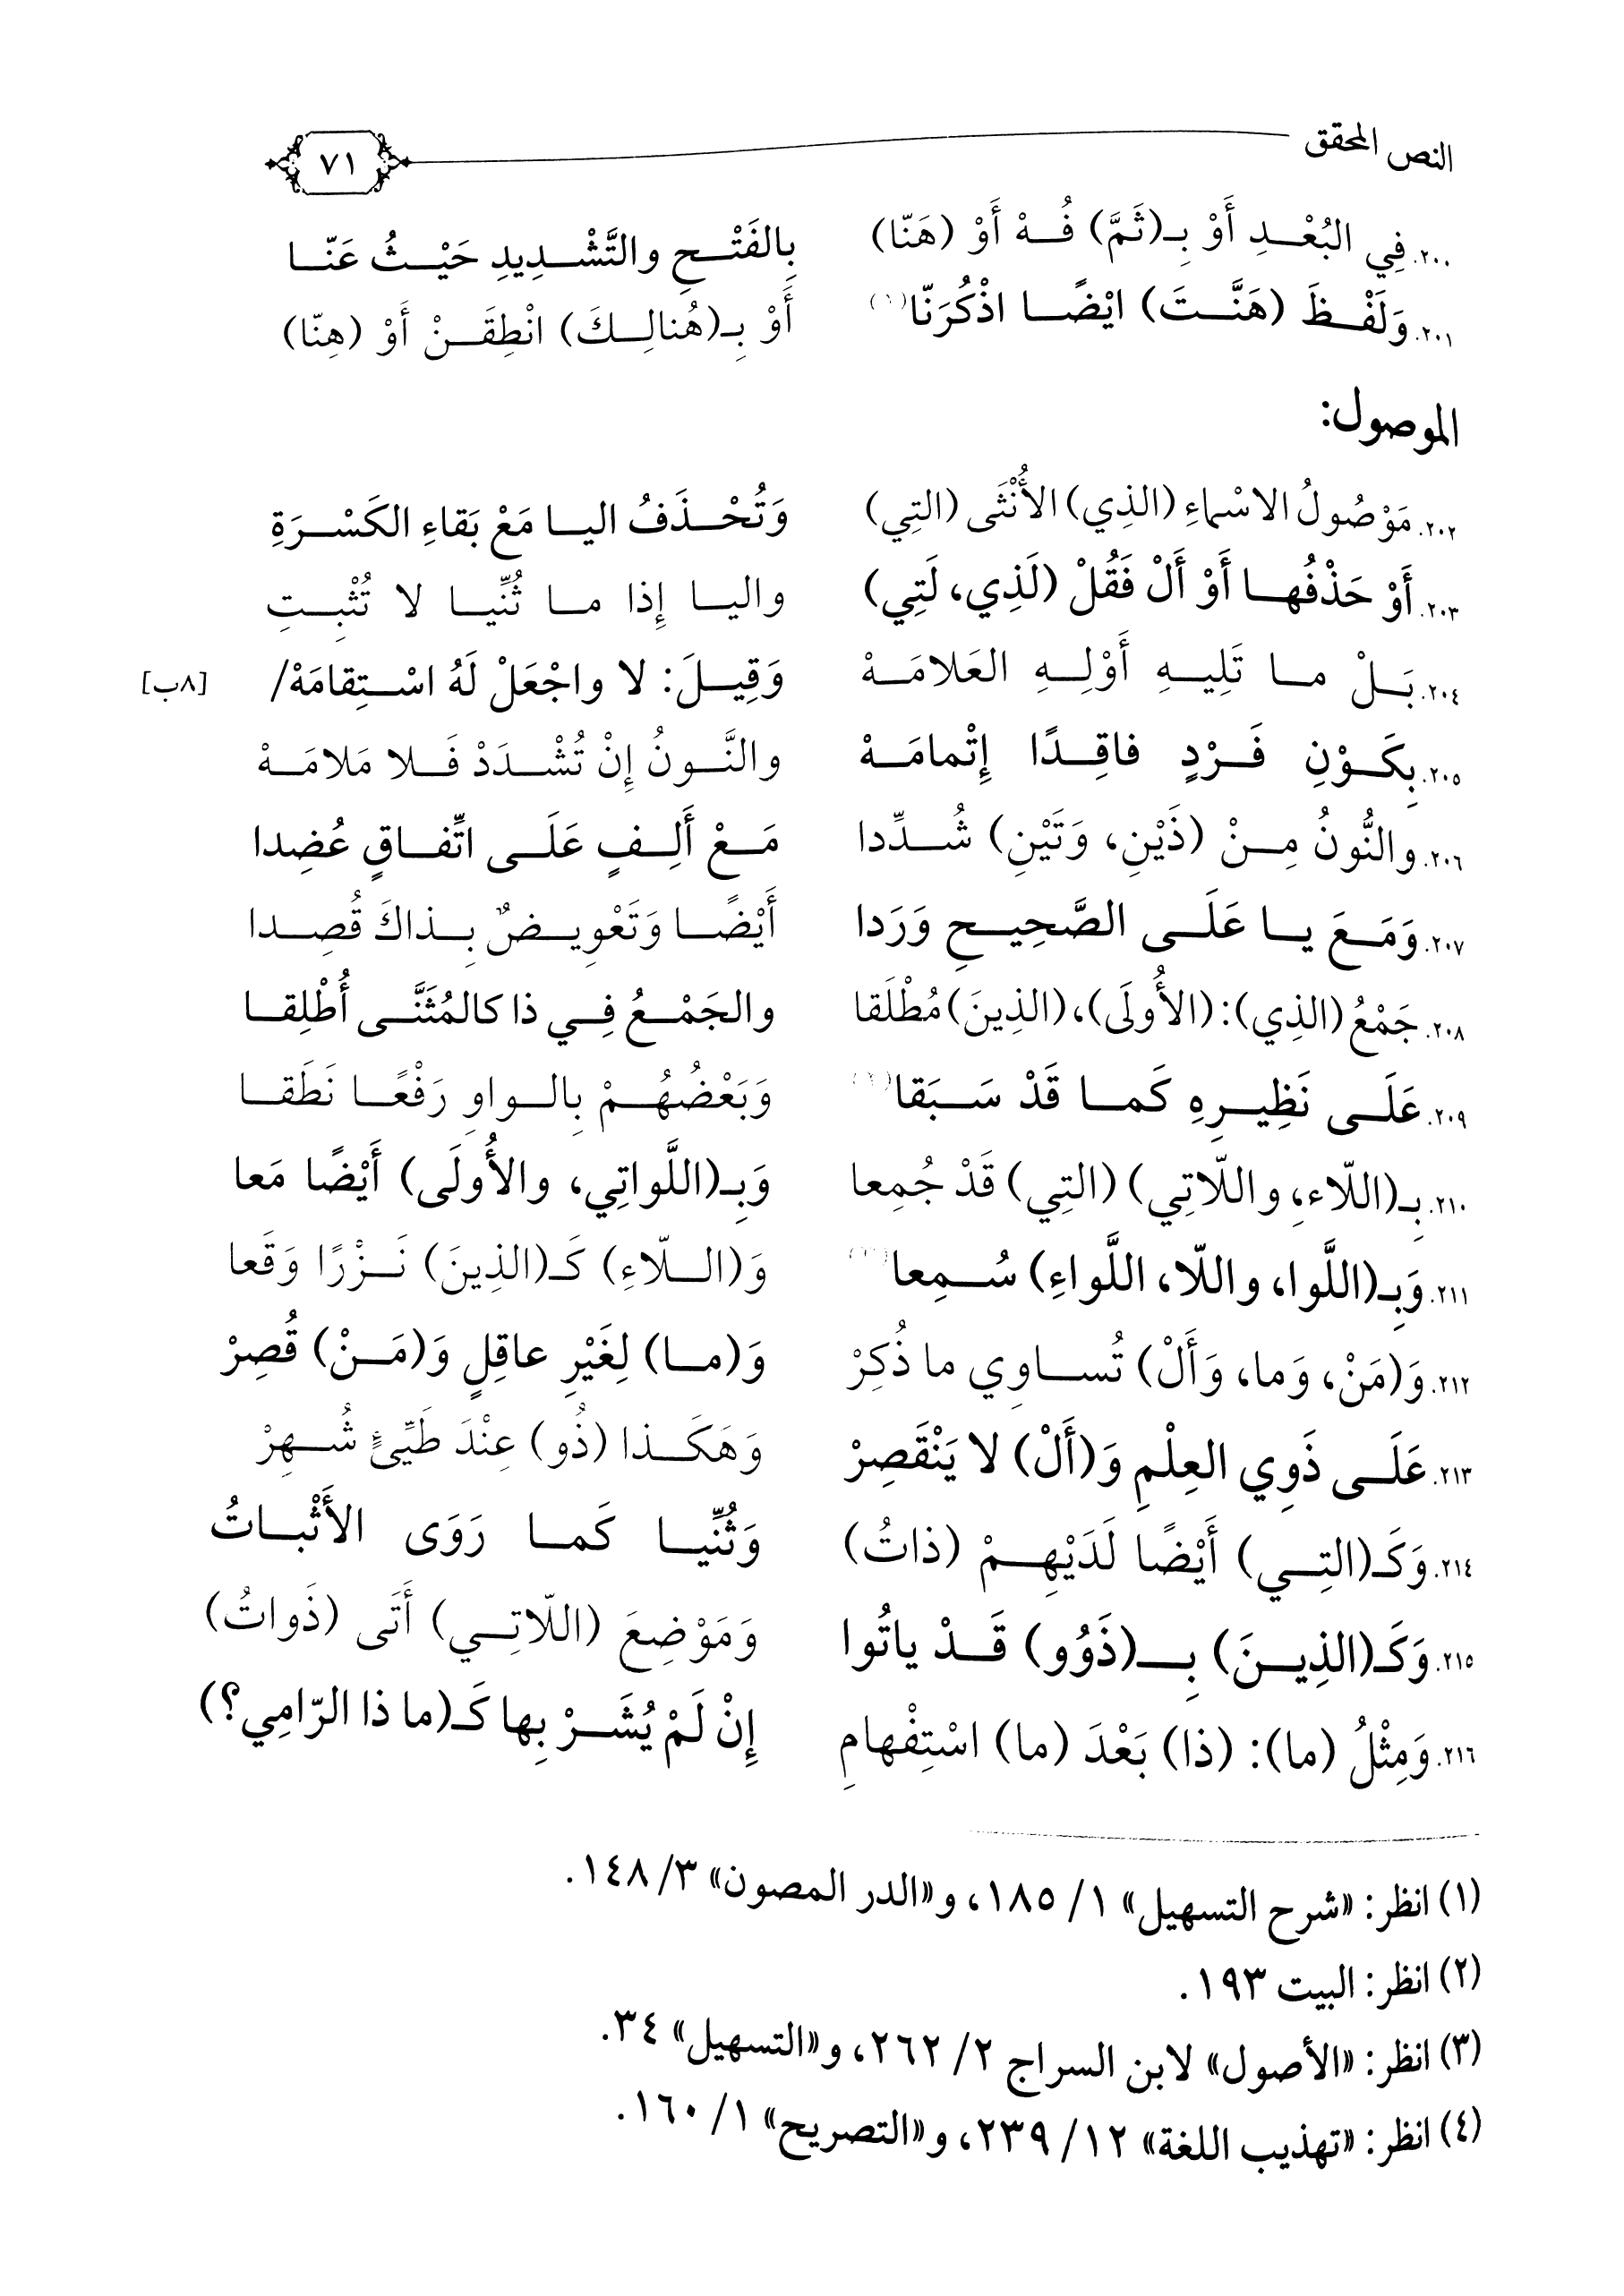 النص المحقق ٧١
٢٠٠. فِي البُعْدِ أَوْ بِـ(ثَمَّ) فُهْ أَوْ (هَنّا) بِالفَتْحِ والتَّشْدِيدِ حَيْثُ عَنّا
٢٠١. وَلَفْظَ (هَنَّتَ) ايْضًا اذْكُرَنّا(١) أَوْ بِـ(هُنالِكَ) انْطِقَنْ أَوْ (هِنّا)
الموصول:
٢٠٢. مَوْصُولُ الاسْماءِ (الذِي) الأُنْثَى (التِي) وَتُحْذَفُ اليا مَعْ بَقاءِ الكَسْرَةِ
٢٠٣. أَوْ حَذْفُها أَوْ أَلْ فَقُلْ (لَذِي، لَتِي) واليا إِذا ما ثُنِّيا لا تُثْبِتِ
٢٠٤. بَلْ ما تَلِيهِ أَوْلِهِ العَلامَهْ وَقِيلَ: لا واجْعَلْ لَهُ اسْتِقامَهْ/ [٨ب]
٢٠٥. بِكَوْنِ فَرْدٍ فاقِدًا إِتْمامَهْ والنَّونُ إِنْ تُشْدَدْ فَلا مَلامَهْ
٢٠٦. والنُّونُ مِنْ (ذَيْنِ، وَتَيْنِ) شُدِّدا مَعْ أَلِفٍ عَلَى اتِّفاقٍ عُضِدا
٢٠٧. وَمَعَ يا عَلَى الصَّحِيحِ وَرَدا أَيْضًا وَتَعْوِيضٌ بِذاكَ قُصِدا
٢٠٨. جَمْعُ (الذِي): (الأُولَى)، (الذِينَ) مُطْلَقا والجَمْعُ فِي ذا كالمُثَنَّى أُطْلِقا
٢٠٩. عَلَى نَظِيرِهِ كَما قَدْ سَبَقا(٢) وَبَعْضُهُمْ بِالواوِ رَفْعًا نَطَقا
٢١٠. بِـ(اللّاءِ، واللّاتِي) (التِي) قَدْ جُمِعا وَبِـ(اللَّواتِي، والأُولَى) أَيْضًا مَعا
٢١١. وَبِـ(اللَّوا، واللّا، اللَّواءِ) سُمِعا(٣) وَ(اللّاءِ) كَـ(الذِينَ) نَزْرًا وَقَعا
٢١٢. وَ(مَنْ، وَما، وَأَلْ) تُساوِي ما ذُكِرْ وَ(ما) لِغَيْرِ عاقِلٍ وَ(مَنْ) قُصِرْ
٢١٣. عَلَى ذَوِي العِلْمِ وَ(أَلْ) لا يَنْقَصِرْ وَهَكَذا (ذُو) عِنْدَ طَيِّئٍ شُهِرْ
٢١٤. وَكَـ(التِي) أَيْضًا لَدَيْهِمْ (ذاتُ) وَثُنِّيا كَما رَوَى الأَثْباتُ
٢١٥. وَكَـ(الذِينَ) بِـ(ذَوُو) قَدْ ياتُوا وَمَوْضِعَ (اللّاتِي) أَتَى (ذَواتُ)
٢١٦. وَمِثْلُ (ما): (ذا) بَعْدَ (ما) اسْتِفْهامِ إِنْ لَمْ يُشَرْ بِها كَـ(ما ذا الرّامِي؟)
(١) انظر: «شرح التسهيل» ١/ ١٨٥، و«الدر المصون» ٣/ ١٤٨.
(٢) انظر: البيت ١٩٣.
(٣) انظر: «الأصول» لابن السراج ٢/ ٢٦٢، و«التسهيل» ٣٤.
(٤) انظر: «تهذيب اللغة» ١٢/ ٢٣٩، و«التصريح» ١/ ١٦٠.